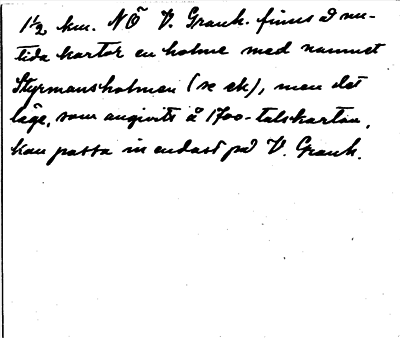 1½ km. NÖ V. Grank. finns å nu-
tida kartor en holme med namnet
Styrmansholmen (se ek), men det
läge, som angivits å 1700-talskartan,
kan passa in endast på V. Grank.